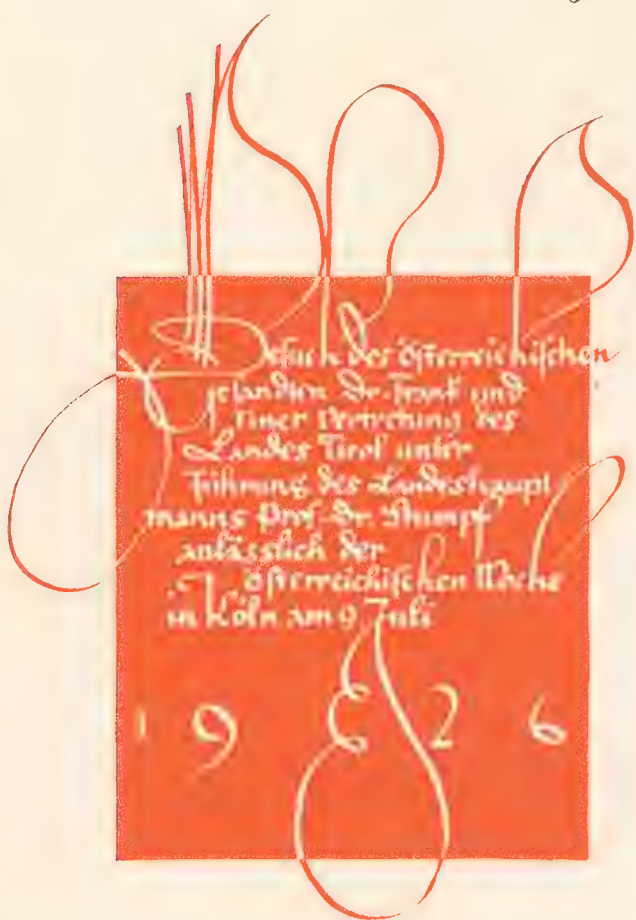 Besuch des österreichischen
Gesandten Dr. Frank und
einer Vertretung des
Landes Tirol unter
Führung des Landeshaupt
manns Prof. Dr. Stumpf
anlässlich der
österreichischen Woche
in Köln am 9 Juli
1926